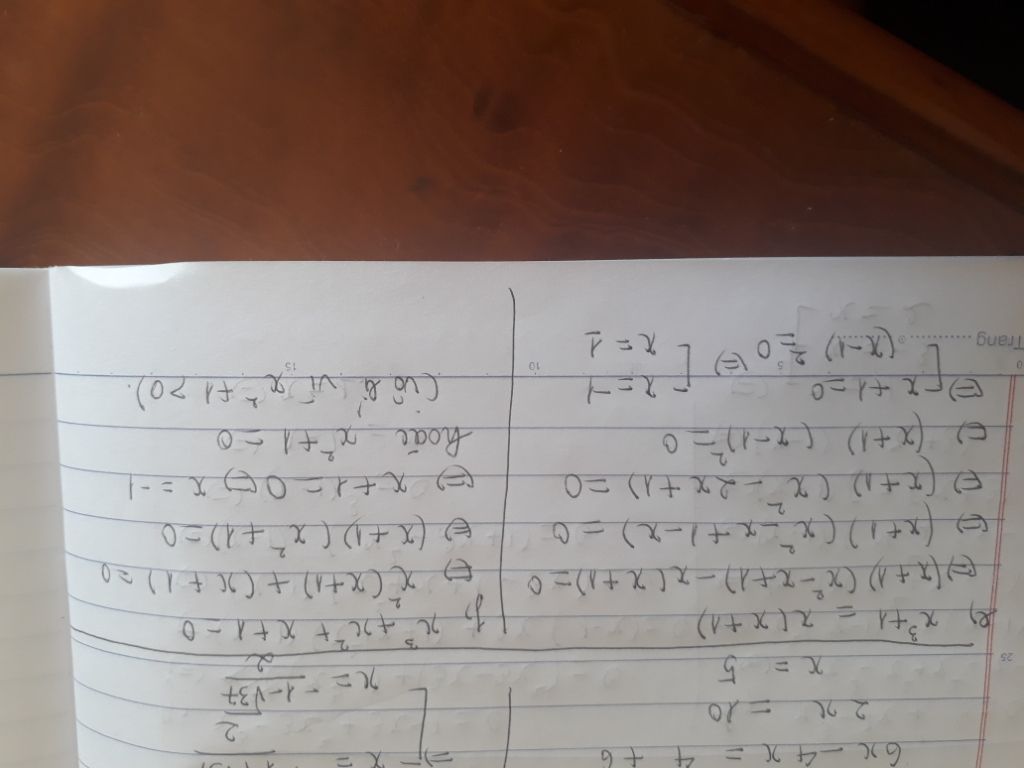 6x - 4x = 4 + 6
2x = 10
x = 5
=> [ x =
2
x = -1-√37
2
e, x³+1 = x(x+1)
<=> (x+1)(x²-x+1) - x(x+1) = 0
<=> (x+1)(x²-x+1-x) = 0
<=> (x+1)(x²-2x+1) = 0
<=> (x+1)(x-1)² = 0
<=> [ x+1=0 <=> [ x=-1
(x-1)²=0 x=1
f, x³+x²+x+1=0
<=> x²(x+1)+(x+1)=0
<=> (x+1)(x²+1)=0
<=> x+1=0 <=> x=-1
hoặc x²+1=0
(vô lí vì x²+1>0).
Trang
5
10
15
25